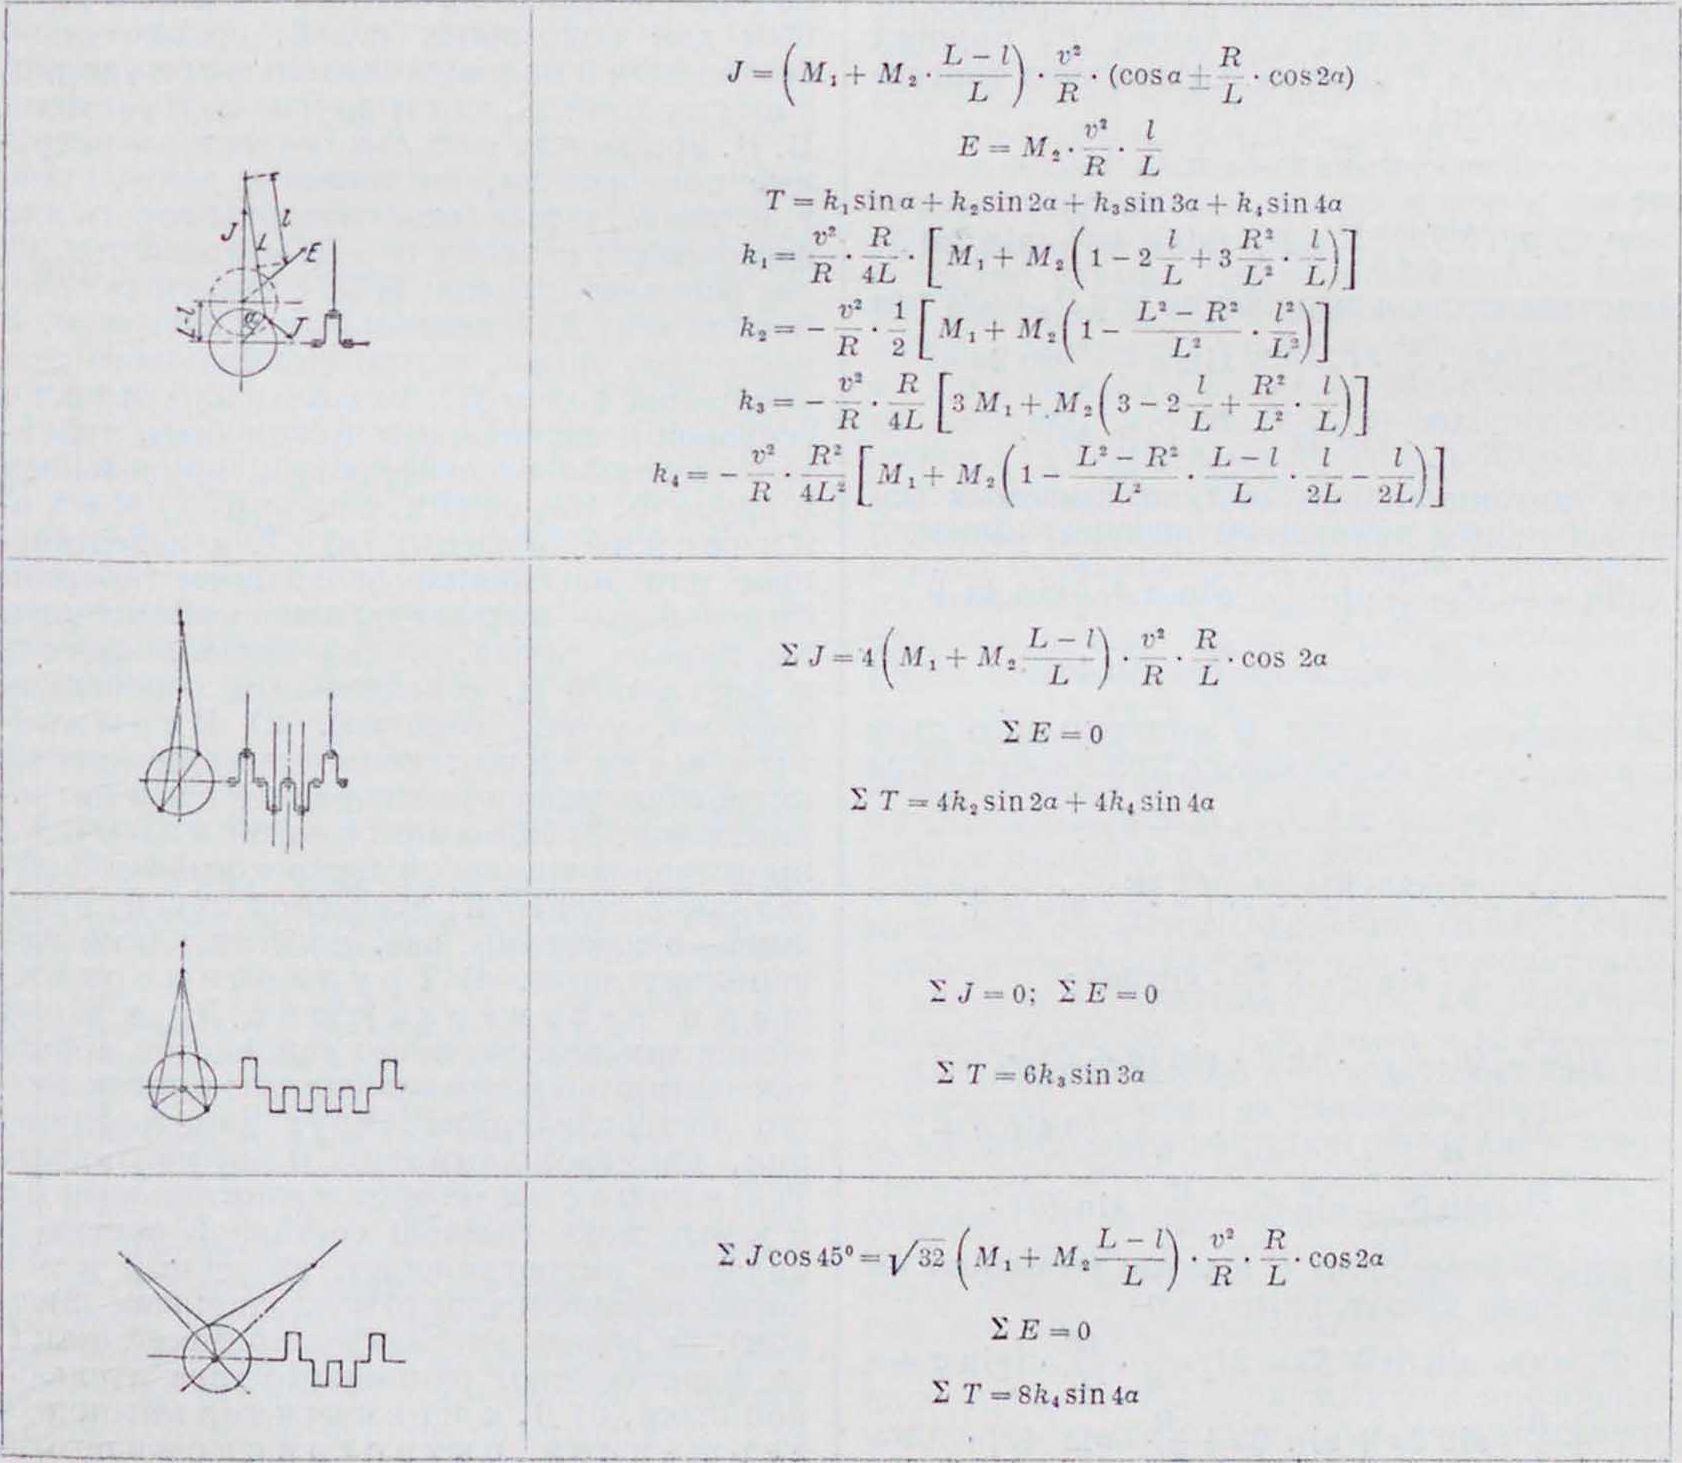 J = (M₁ + M₂ · (L − l)/L) · v²/R · (cos α ± R/L · cos 2α)
E = M₂ · v²/R · l/L
T = k₁ sin α + k₂ sin 2α + k₃ sin 3α + k₄ sin 4α
k₁ = v²/R · R/4L · [M₁ + M₂(1 − 2 l/L + 3 R²/L² · l/L)]
k₂ = − v²/R · 1/2 [M₁ + M₂(1 − (L² − R²)/L² · l²/L²)]
k₃ = − v²/R · R/4L [3 M₁ + M₂(3 − 2 l/L + R²/L² · l/L)]
k₄ = − v²/R · R²/4L² [M₁ + M₂(1 − (L² − R²)/L² · (L − l)/L · l/2L − l/2L)]
J
L
l
E
L-l
α
T
Σ J = 4 (M₁ + M₂ (L − l)/L) · v²/R · R/L · cos 2α
Σ E = 0
Σ T = 4k₂ sin 2α + 4k₄ sin 4α
Σ J = 0; Σ E = 0
Σ T = 6k₃ sin 3α
Σ J cos 45⁰ = √32 (M₁ + M₂ (L − l)/L) · v²/R · R/L · cos 2α
Σ E = 0
Σ T = 8k₄ sin 4α